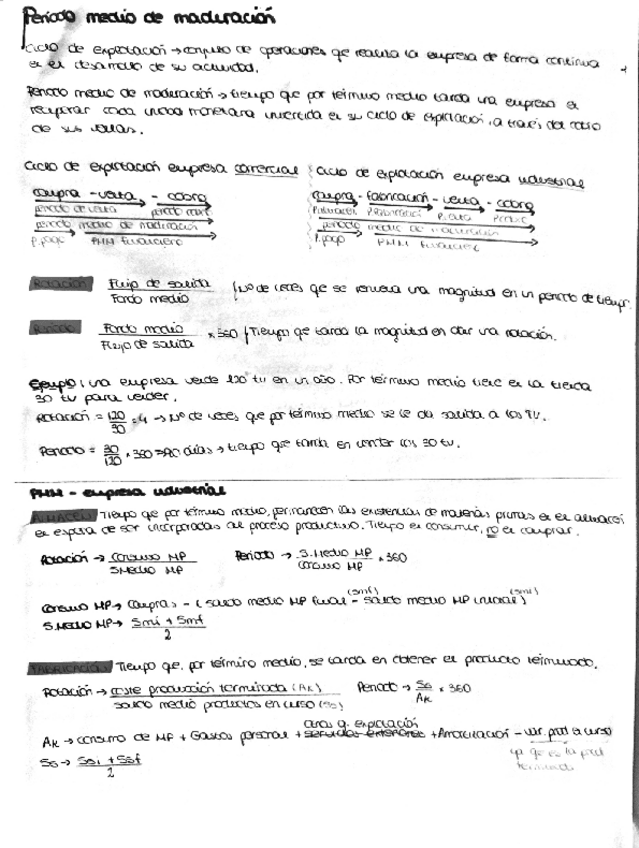 Período medio de maduración
Ciclo de explotación → conjunto de operaciones qe realiza la empresa de forma continua
en el desarrollo de su actividad.
Periodo medio de maduración → tiempo qe por término medio tarda una empresa en
recuperar cada unidad monetaria invertida en su ciclo de explotación, a través del cobro
de sus ventas.
Ciclo de explotación empresa comercial
compra - venta - cobro
periodo de venta periodo cobro
periodo medio de maduración
P. pago PMM financiero
Ciclo de explotación empresa industrial
compra - fabricación - venta - cobro
P. almacén P. fabricación P. venta P. cobro
periodo medio de maduración
P. pago PMM financiero
Rotación Flujo de salida / Fondo medio Nº de veces qe se renueva una magnitud en un periodo de tiempo.
Periodo Fondo medio / Flujo de salida × 360 Tiempo qe tarda la magnitud en dar una rotación.
Ejemplo: una empresa vende 120 tv en un año. Por término medio tiene en la tienda
30 tv para vender.
Rotación = 120/30 = 4 → Nº de veces que por término medio se le da salida a los TV.
Periodo = 30/120 × 360 = 90 días → tiempo que tarda en vender los 30 tv.
PMM - empresa industrial
ALMACÉN Tiempo qe por término medio, permanecen las existencias de materias primas en el almacén
en espera de ser incorporadas al proceso productivo. Tiempo en consumir, no en comprar.
Rotación → Consumo MP / S.Medio MP Periodo → S.Medio MP / Consumo MP × 360
Consumo MP → Compras - (saldo medio MP final (smf) - saldo medio MP inicial (smi))
S.Medio MP → Smi + Smf / 2
FABRICACIÓN Tiempo qe, por término medio, se tarda en obtener el producto terminado.
Rotación → coste producción terminada (Ak) / saldo medio productos en curso (So) Periodo → So / Ak × 360
otros g. explotación
Ak → consumo de MP + Gastos personal + servicios exteriores + Amortización - var. prod en curso
So → Soi + Sof / 2
ya qe es la prod
terminada